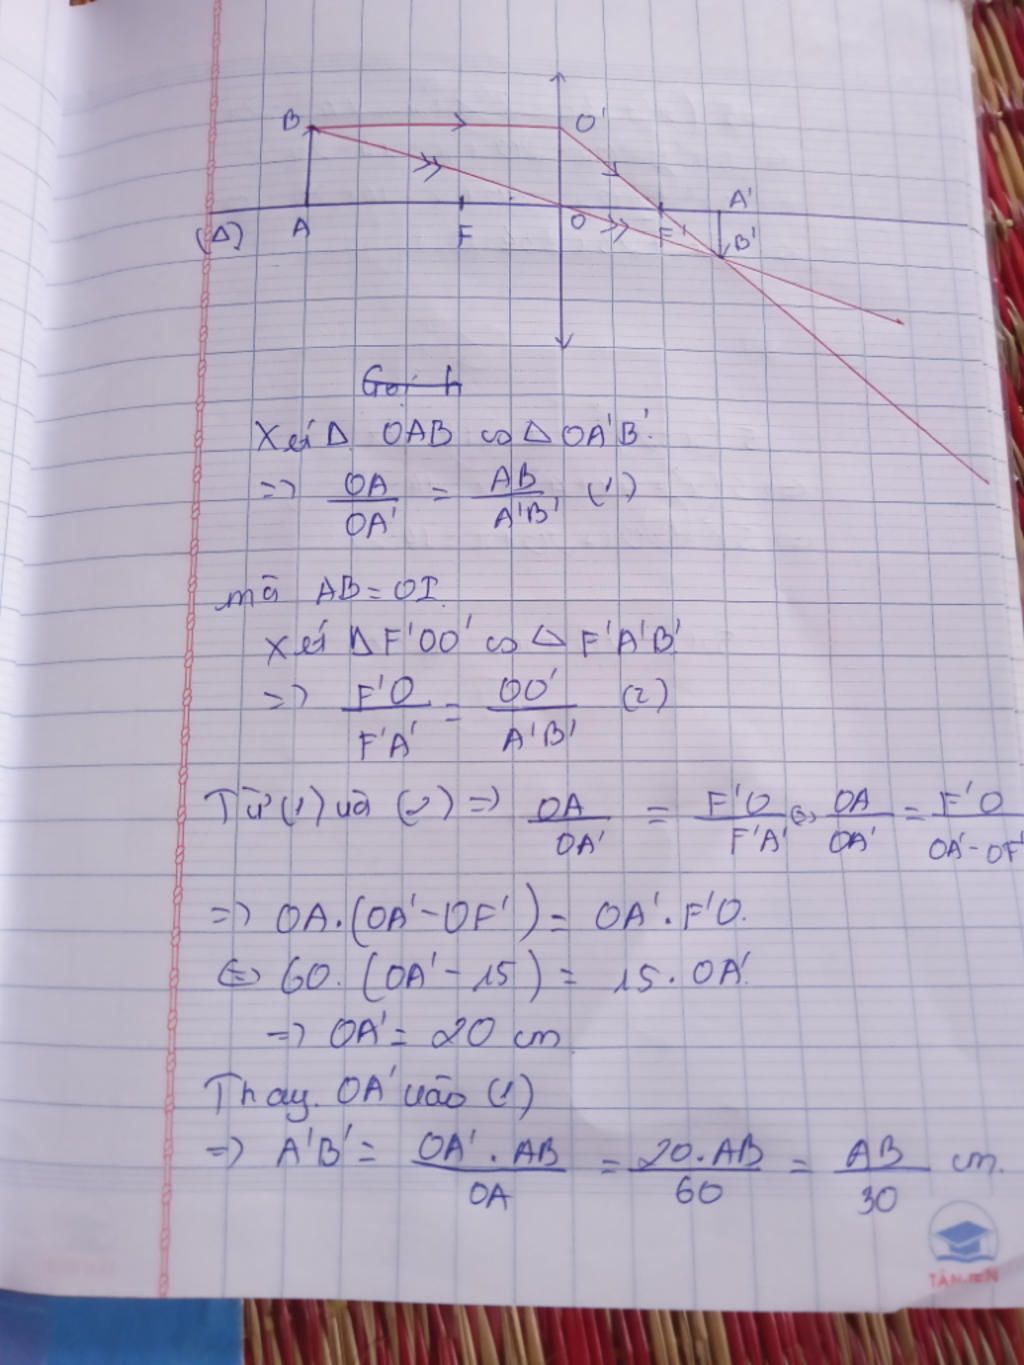 B O'
A'
(Δ) A F O F' B'
Gọi h
Xét Δ OAB ∽ Δ OA'B'.
=> OA/OA' = AB/A'B' (1)
mà AB = OI.
Xét ΔF'OO' ∽ Δ F'A'B'
=> F'O/F'A' = OO'/A'B' (2)
Từ (1) và (2) => OA/OA' = F'O/F'A' <=> OA/OA' = F'O/OA'-OF'
=> OA.(OA'-OF') = OA'.F'O.
<=> 60.(OA'-15) = 15.OA'
=> OA' = 20 cm
Thay OA' vào (1)
=> A'B' = OA'.AB/OA = 20.AB/60 = AB/30 cm.